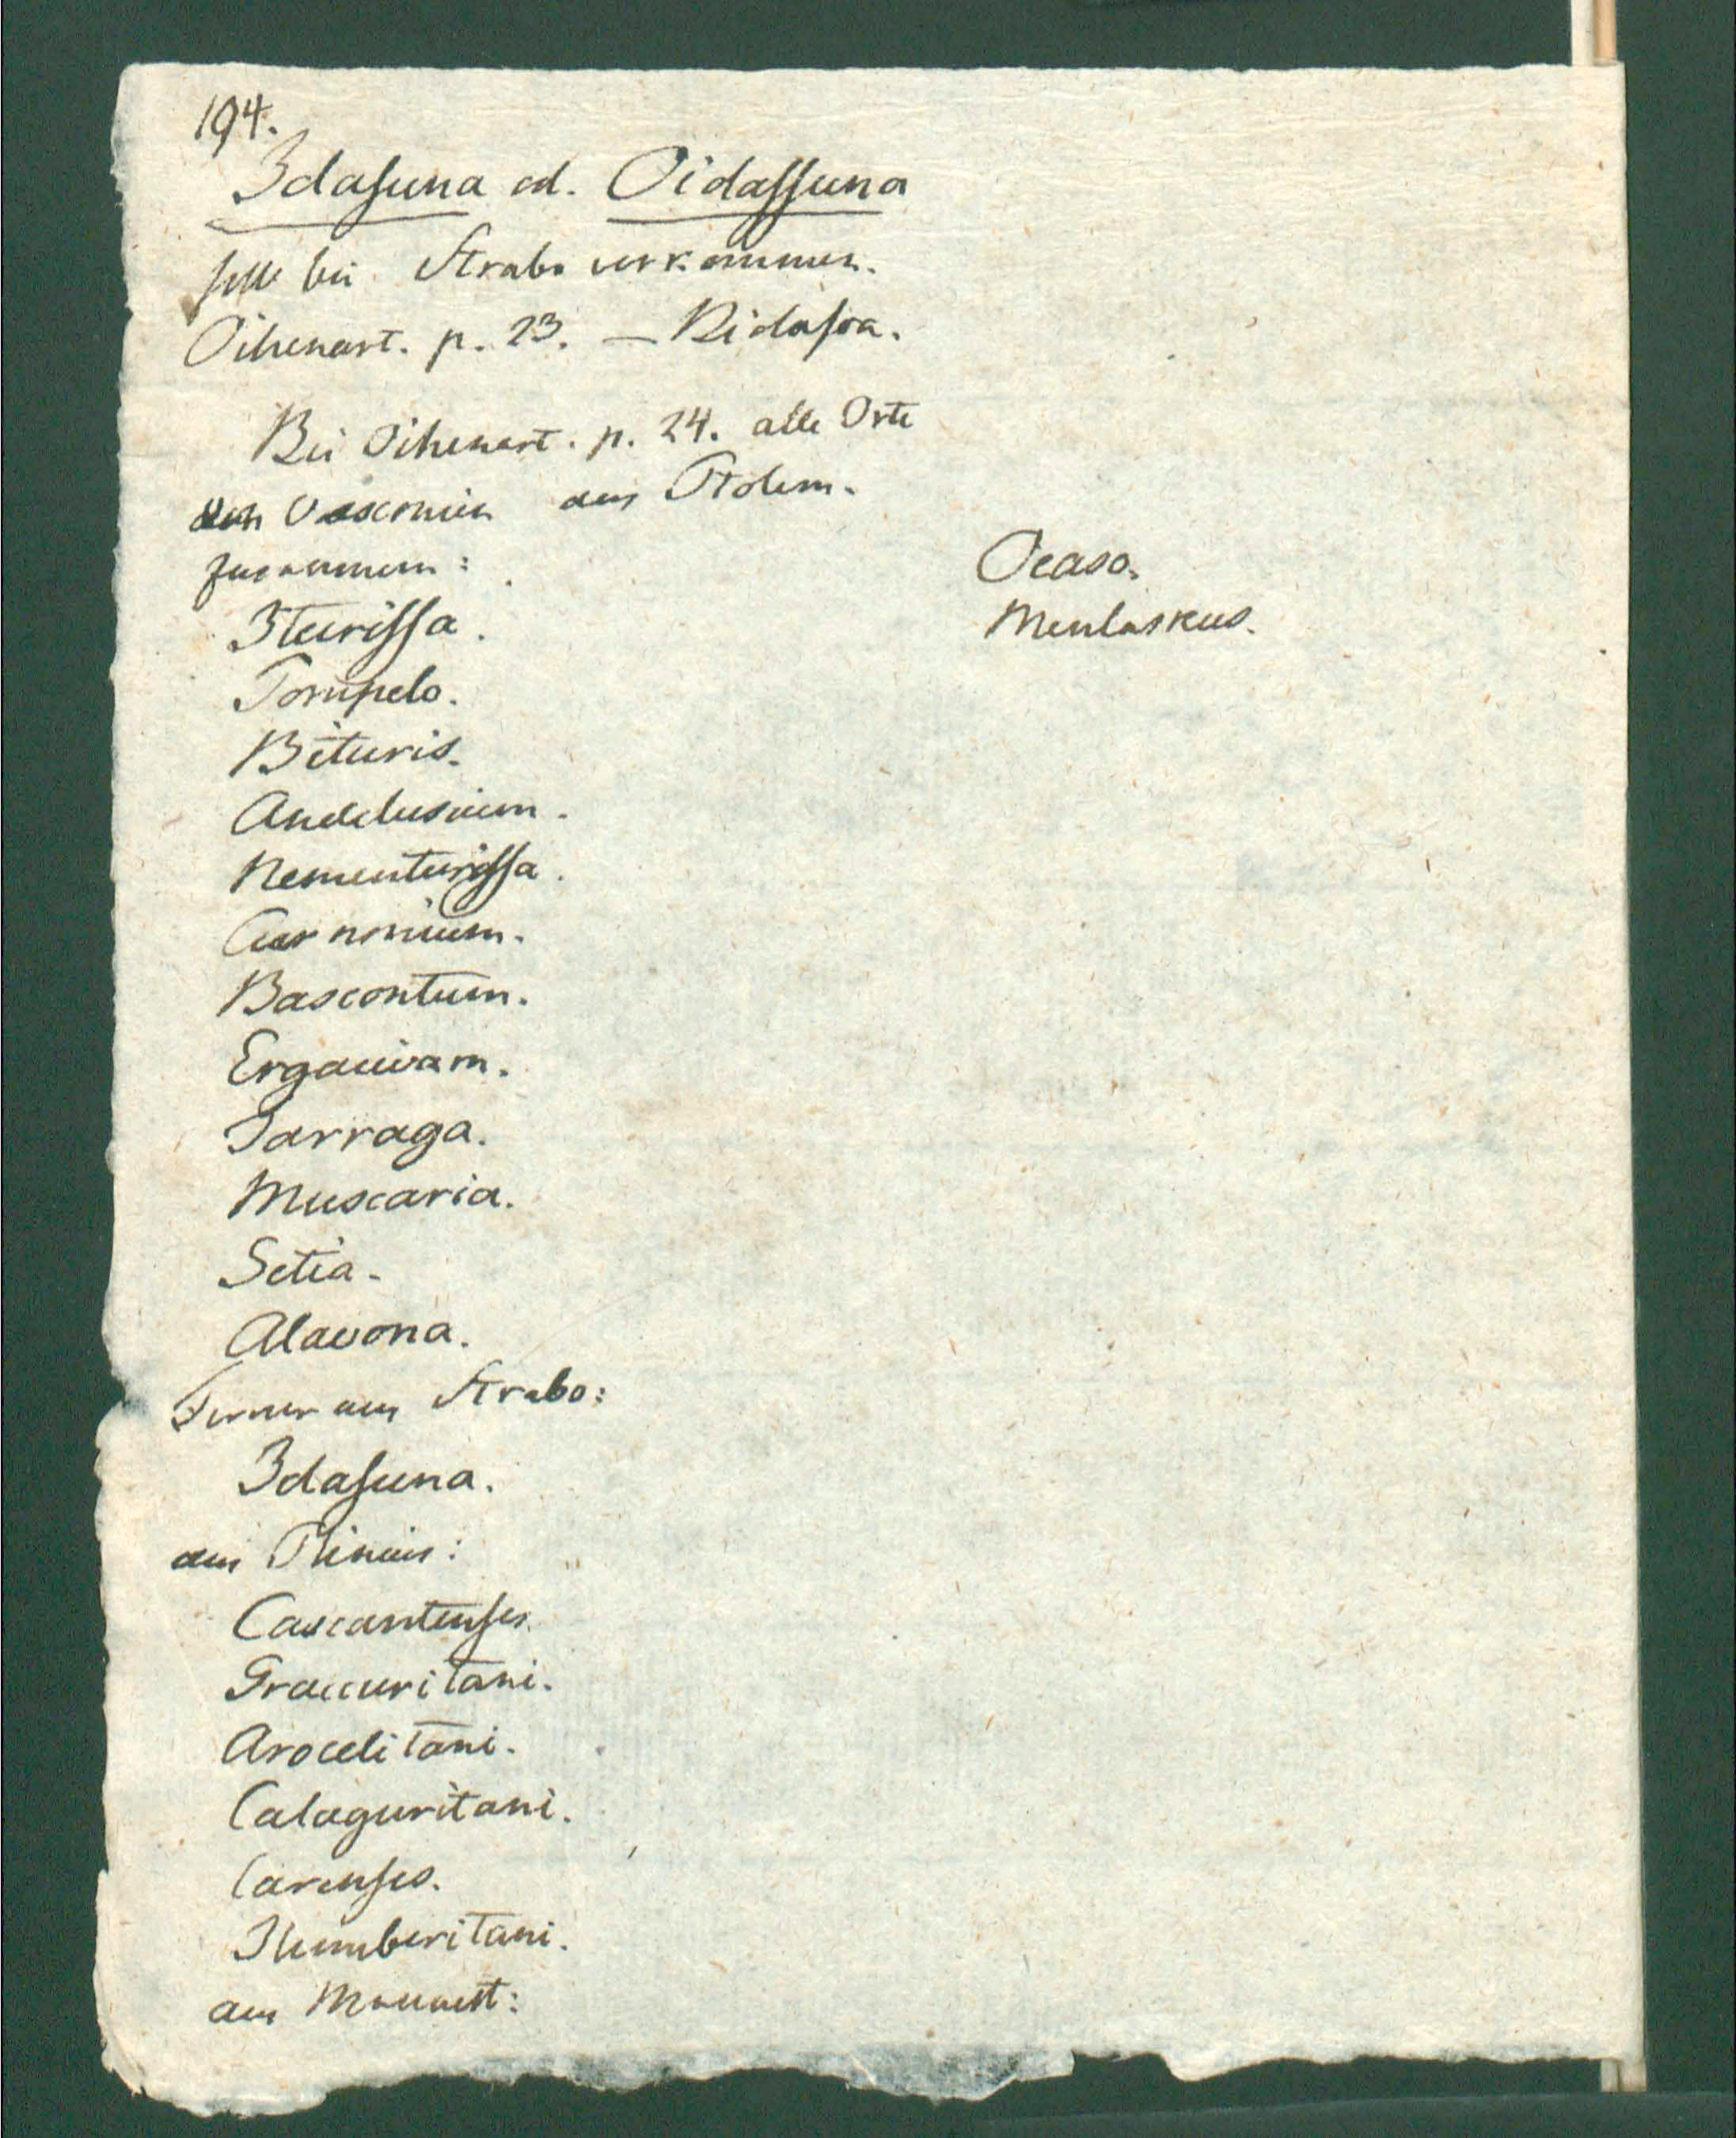 194.
Idasuna od. Oidassuna
solle bei Strabo vorkommen.
Oihenart. p. 23. – Bidasoa.
Bei Oihenart. p. 24. alle Orte
den Vasconien aus Ptolem.
zusammen:
Iturissa.
Pompelo.
Bituris.
Andelusium.
Nementurissa.
Curnonium.
Bascontum.
Ergauivam.
Tarraga.
Muscaria.
Setia.
Alavona.
Ferner aus Strabo:
Idasuna.
aus Plinius:
Cascantenses.
Graccuritani.
Arocelitani.
Calaguritani.
Carenses.
Ilumberitani.
aus
Ocaso.
Menlaskus.